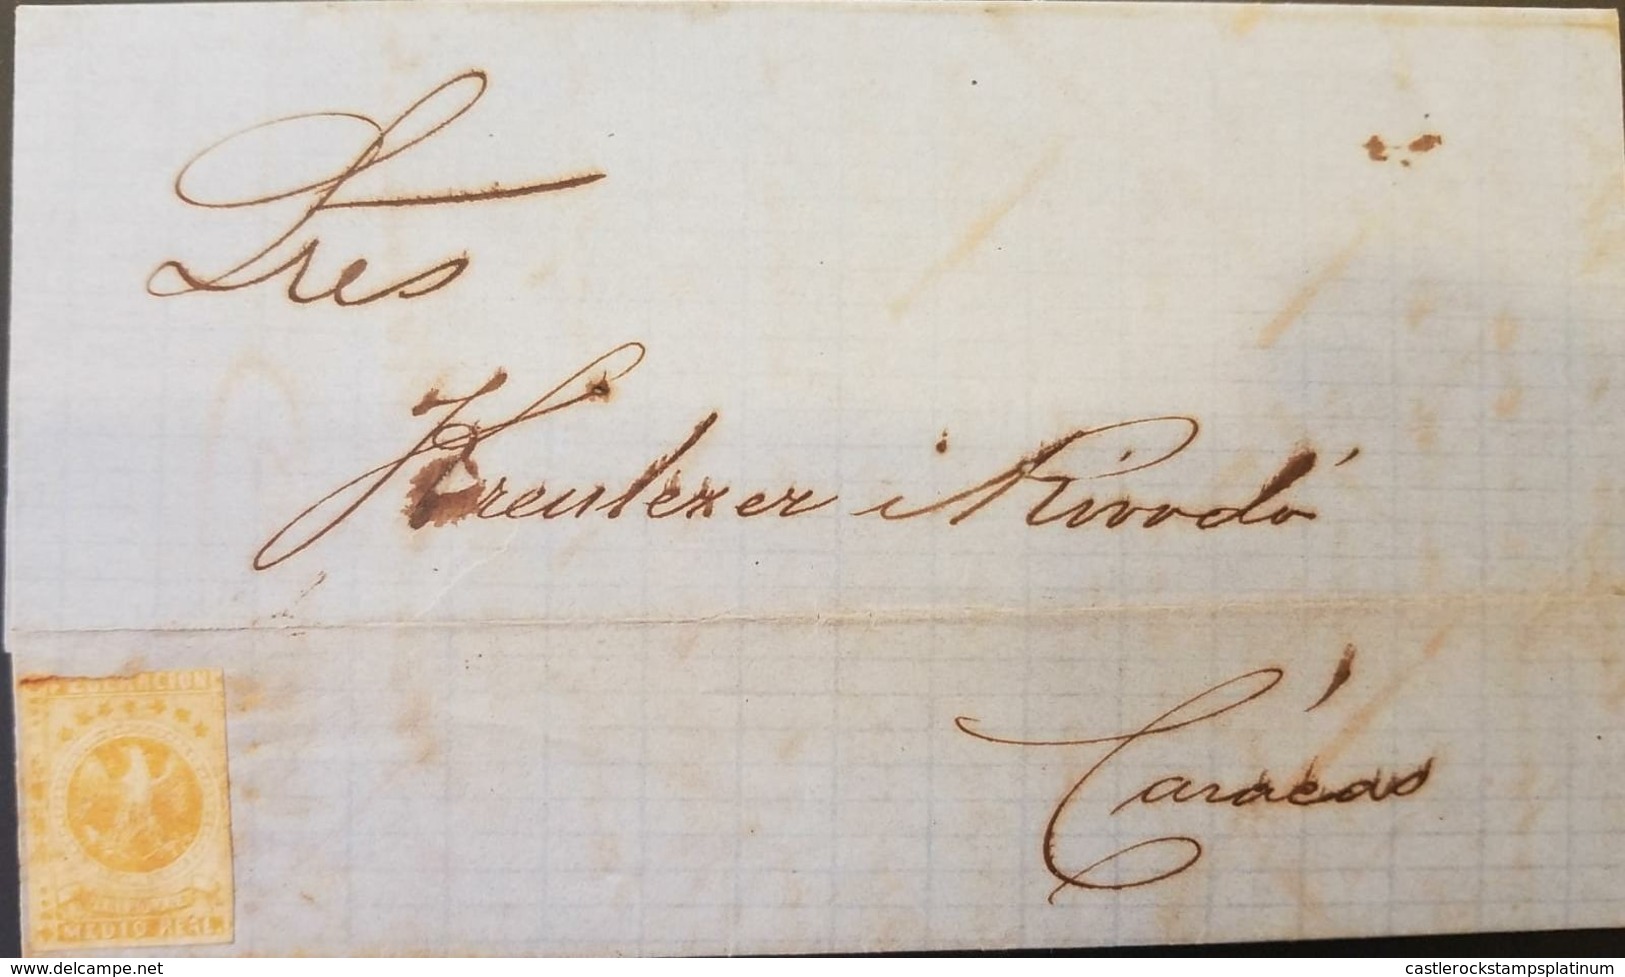 Sres
Kreutzer i Rivodó
Carácas
FEDERACION
MEDIO REAL
www.delcampe.net
castlerockstampsplatinum